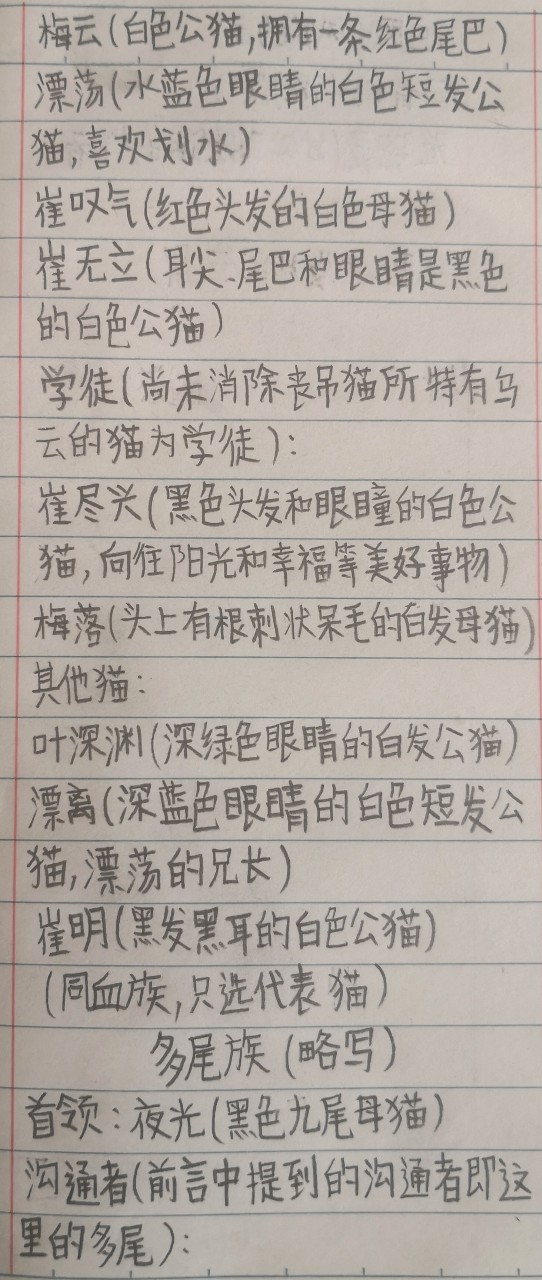 梅云(白色公猫,拥有一条红色尾巴)
漂荡(水蓝色眼睛的白色短发公
猫,喜欢划水)
崔叹气(红色头发的白色母猫)
崔无立(耳尖、尾巴和眼睛是黑色
的白色公猫)
学徒(尚未消除丧吊猫所特有乌
云的猫为学徒):
崔尽兴(黑色头发和眼瞳的白色公
猫,向往阳光和幸福等美好事物)
梅落(头上有根刺状呆毛的白发母猫)
其他猫:
叶深渊(深绿色眼睛的白发公猫)
漂离(深蓝色眼睛的白色短发公
猫,漂荡的兄长)
崔明(黑发黑耳的白色公猫)
(同血族,只选代表猫)
多尾族(略写)
首领:夜光(黑色九尾母猫)
沟通者(前言中提到的沟通者即这
里的多尾):